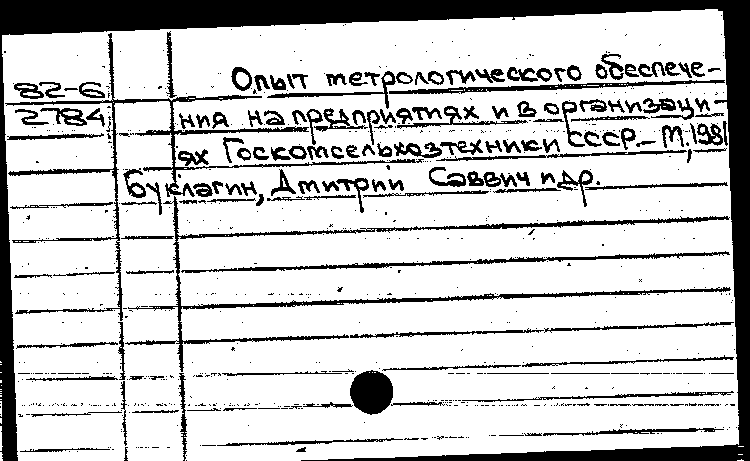 82-6
2784
Опыт метрологического обеспече-
ния на предприятиях и в организаци-
ях Госкомсельхозтехники СССР.- М., 1981
Буклагин, Дмитрий Саввич и др.